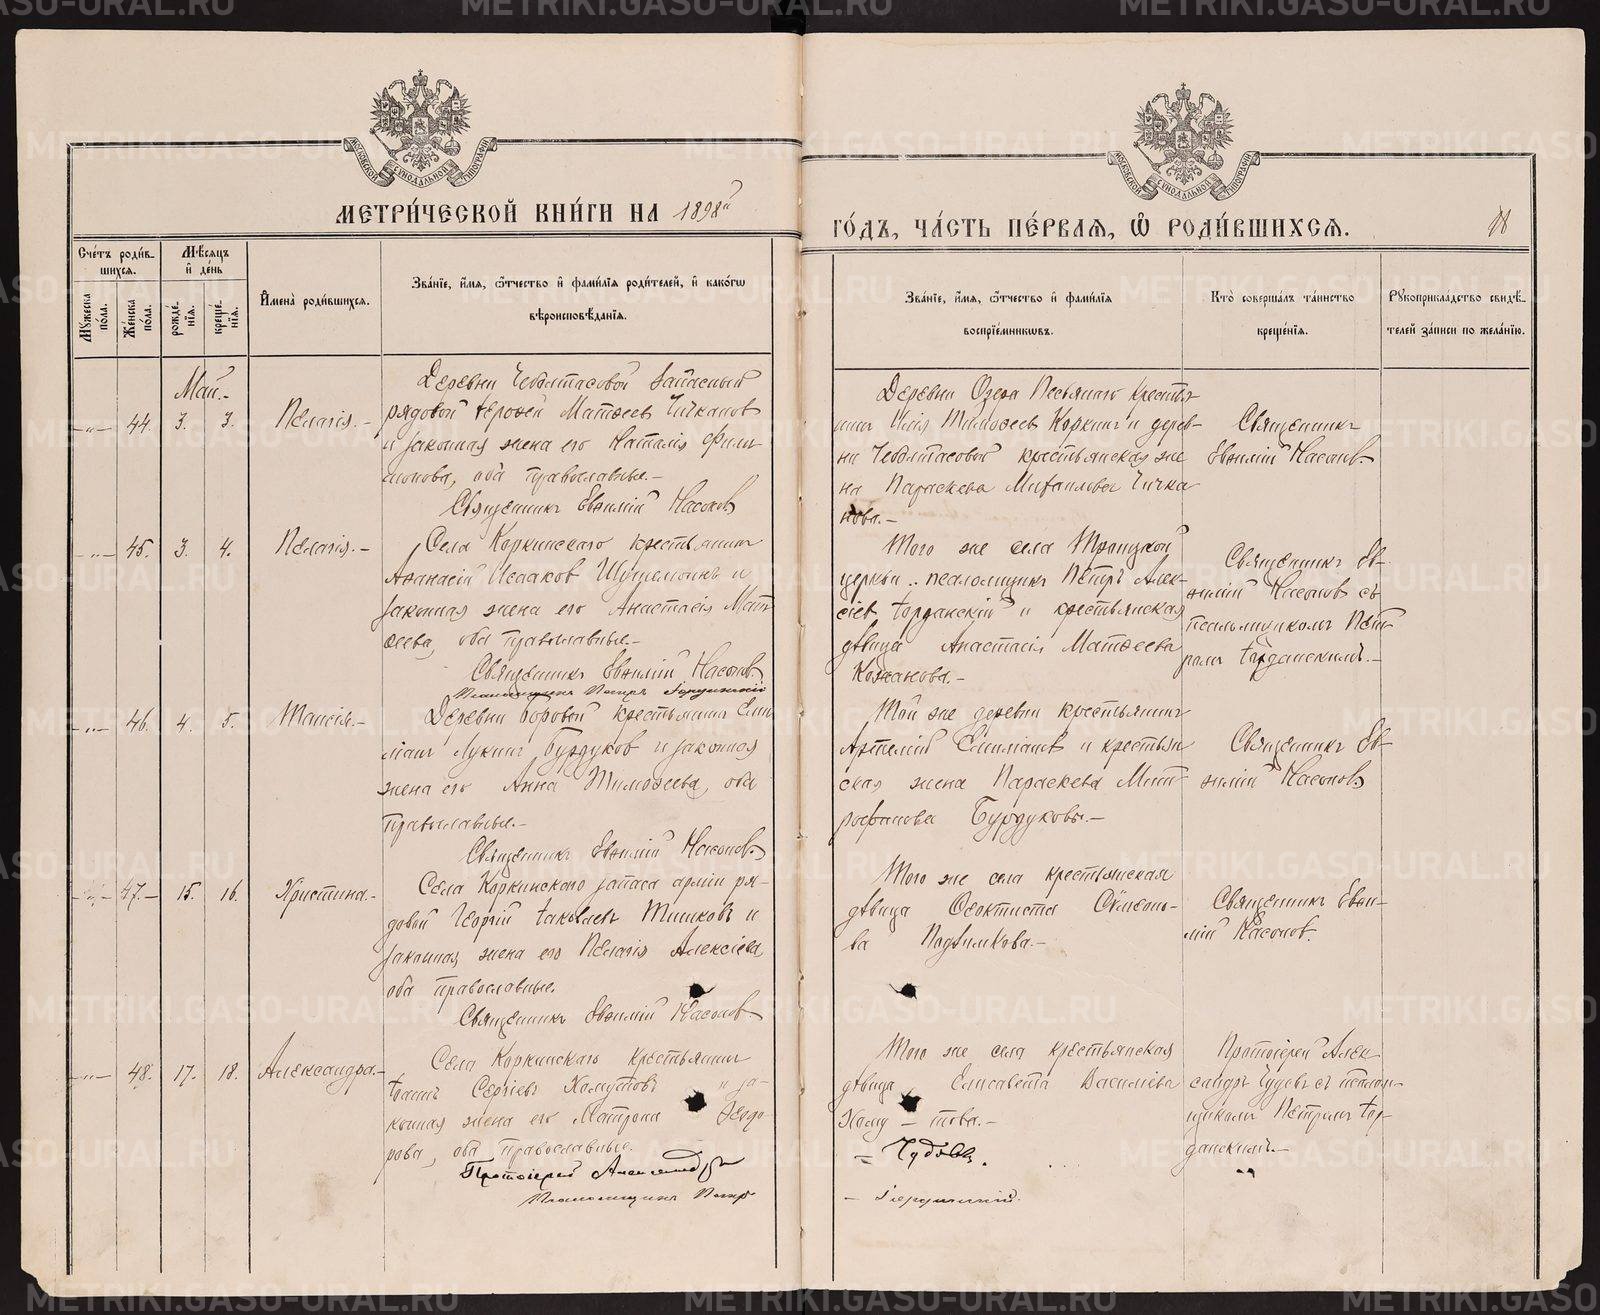 МОСКОВСКОЙ СѴНОДАЛЬНОЙ ТИПОГРАФІИ
МОСКОВСКОЙ СѴНОДАЛЬНОЙ ТИПОГРАФІИ
МЕТРИ́ЧЕСКОЙ КНИ́ГИ НА 1898й
ГО́ДЪ, ЧА́СТЬ ПЕ́РВАЯ, Ѽ РОДИ́ВШИХСЯ.
Сче́тъ роди́в-
шихся.
Мꙋжеска по́ла.
Же́нска по́ла.
Мѣсяцъ
и҆ де́нь
рожде́-
нїя.
креще́-
нїя.
И҆мена̀ роди́вшихся.
Зва́нїе, и҆́мя, ѻ҆́тчество и҆ фами́лїя роди́телей, и҆ како́гѡ
вѣроисповѣ́данїя.
Зва́нїе, и҆́мя, ѻ҆́тчество и҆ фами́лїя
воспрїе́мникѡвъ.
Кто̀ соверша́лъ та́инство
креще́нїя.
Рꙋкоприкла́дство свидѣ́-
телей за́писи по жела́нїю.
Май.-
-"- 44. 3. 3. Пелагія.-
Деревни Чеболтасовой Запасный
рядовой Ерофей Матѳеев Чичканов
и законная жена его Наталія Фили
монова, оба православные.-
Священникъ Евѳимій Насонов
Деревни Озера Песьяного крестья
нин Илія Тимоѳеев Коркин и дерев-
ни Чеболтасовой крестьянская же
на Параскева Михаилова Чичка
нова.-
Священникъ
Евѳимій Насонов.
-"- 45. 3. 4. Пелагія.-
Села Коркинскаго крестьянин
Аѳанасій Исааков и
законная жена его Анастасія Мат
ѳеева, оба православные.-
Священникъ Евѳимій Насонов.
Псаломщикъ Петръ Іорданскій
Того же села Троицкой
церкви псаломщикъ Петръ Алек-
сіев Іорданскій и крестьянская
дѣвица Анастасія Матѳеева
Кожанова.-
Священникъ Ев-
ѳимій Насонов съ
псаломщиком Пет
ром Іорданским.-
-"- 46. 4. 5. Таисія.-
Деревни Боровой крестьянин Еми
ліан Лукин Бурдуков и законная
жена его Анна Тимоѳеева, оба
православные.-
Священникъ Евѳимій Насонов.
Той же деревни крестьянин
Артемій Емиліанов и крестьян
ская жена Параскева Мит
рофанова Бурдуковы.-
Священникъ Ев-
ѳимій Насонов
-"- 47.- 15. 16. Христина.-
Села Коркинскаго запаса арміи ря-
довой Георгій Іаковлевъ Тишковъ и
законная жена его Пелагія Алексіева
оба православные.
Священникъ Евѳимій Насонов
Того же села крестьянская
дѣвица Ѳеоктиста Сѵмеоно-
ва
Священникъ Евѳи-
мій Насонов.
-"- 48. 17. 18. Александра.-
Села Коркинскаго крестьянин
Іоанн Сергіевъ Хомутовъ и за-
конная жена его Матрона Ѳеодо
рова, оба православные.
Протоіерей Александръ
Псаломщикъ Петръ
Того же села крестьянская
дѣвица Елисавета Василіева
Хому - това.-
- Чудовъ.
- Іорданскій.
Протоіерей Алек
сандръ Чудов съ псалом-
щиком Петром Іор-
данским.-
METRIKI.GASO-URAL.RU